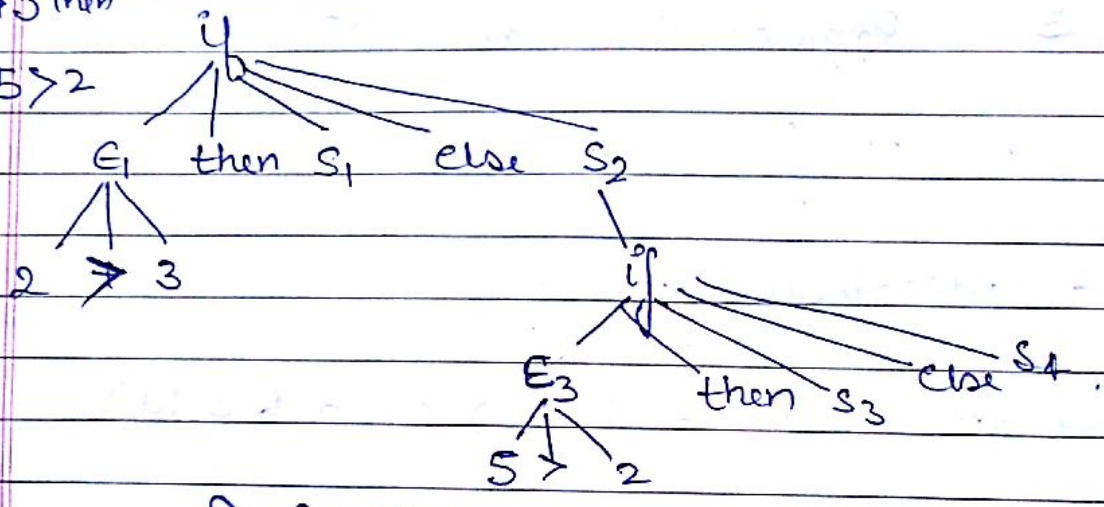 then
if
5>2
E1 then S1 else S2
2 > 3
if
E3 then S3 else S4
5 > 2